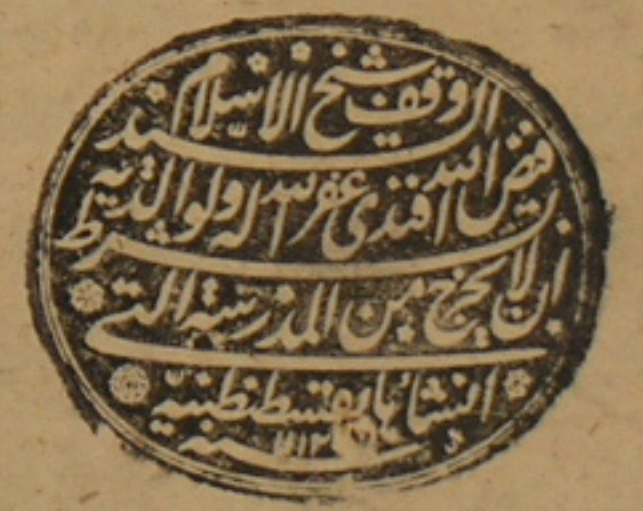 وقف شيخ الاسلام السيد
فيض الله افندى غفر الله له ولوالديه بشرط
ان لا يخرج من المدرسة التى
انشأها بقسطنطنية
سنة ١١١٢